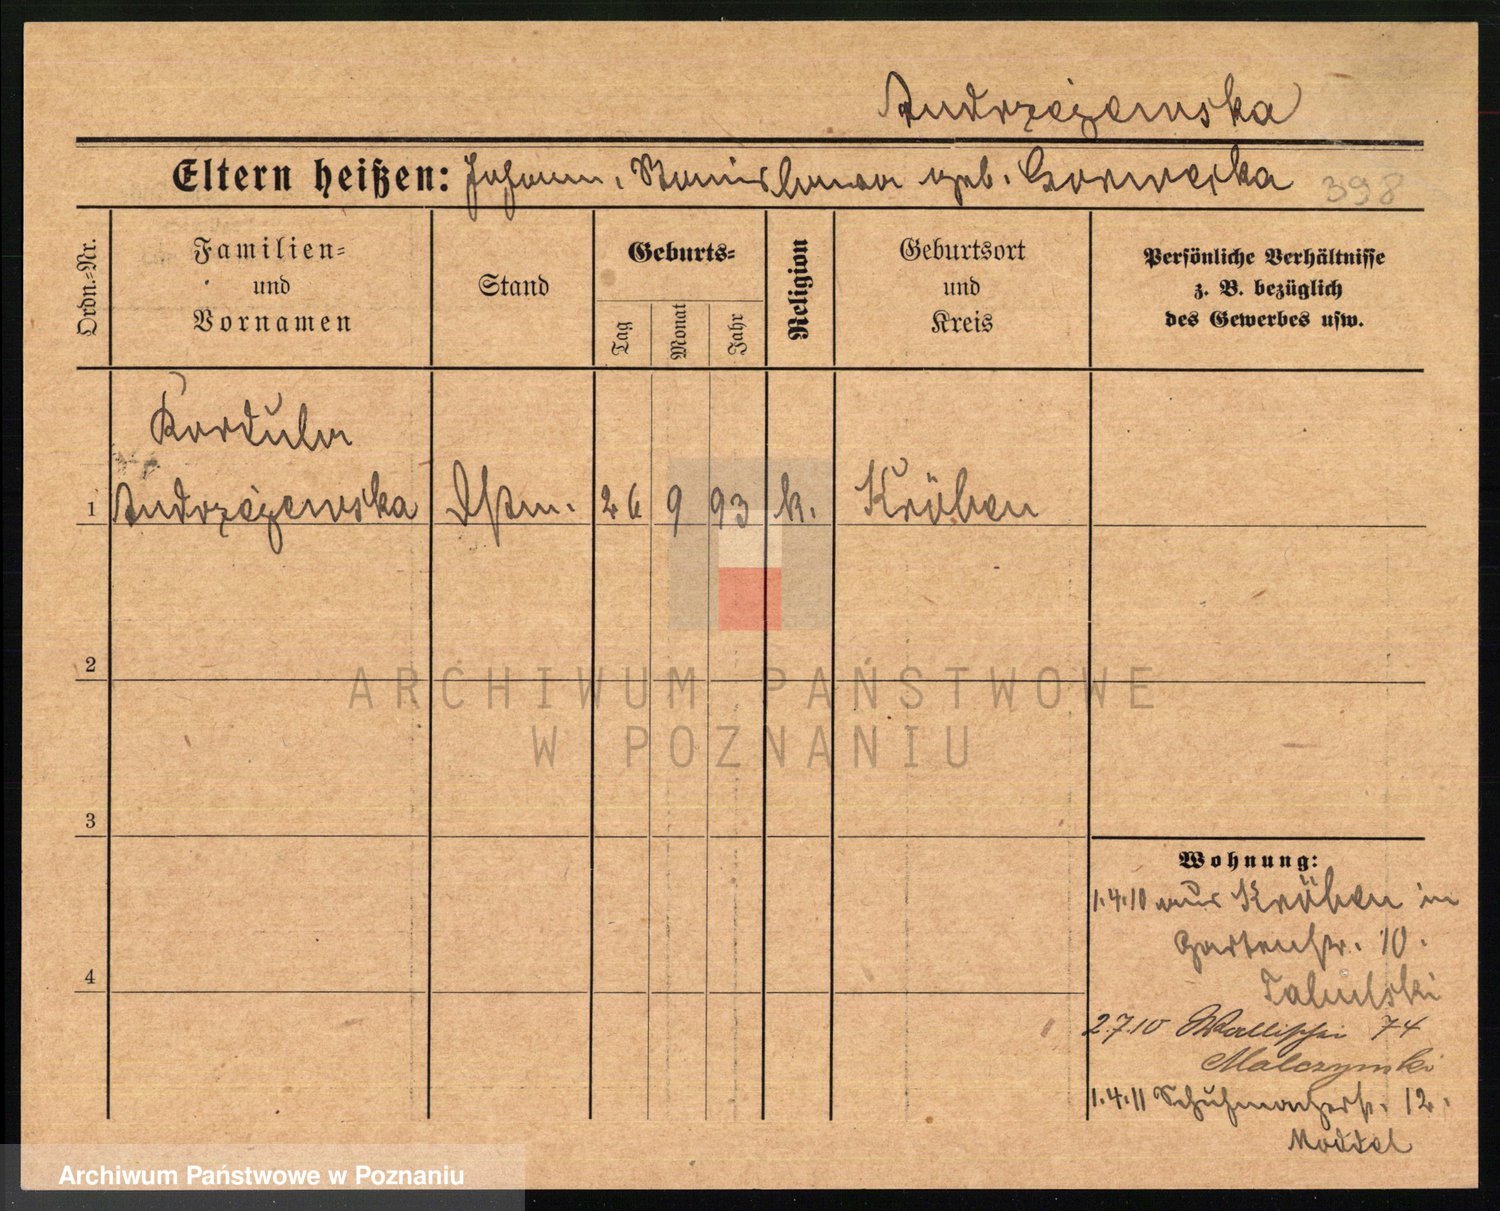 Andrzejewska
Eltern heißen: Johann, Stanislawa geb. Gorwecka 398
Ordn.=Nr.
Familien=
und
Vornamen
Stand
Geburts=
Tag
Monat
Jahr
Religion
Geburtsort
und
Kreis
Persönliche Verhältnisse
z. B. bezüglich
des Gewerbes usw.
Kordula
1 Andrzejewska Dstm. 26 9 93 k. Kröben
2
3
4
ARCHIWUM PAŃSTWOWE
W POZNANIU
Wohnung:
1.4.10 aus Kröben in
Gartenstr. 10.
2.7.10 Wallischei 74
Malczynski
1.4.11 Schuhmacherstr. 12.
Moddel
Archiwum Państwowe w Poznaniu